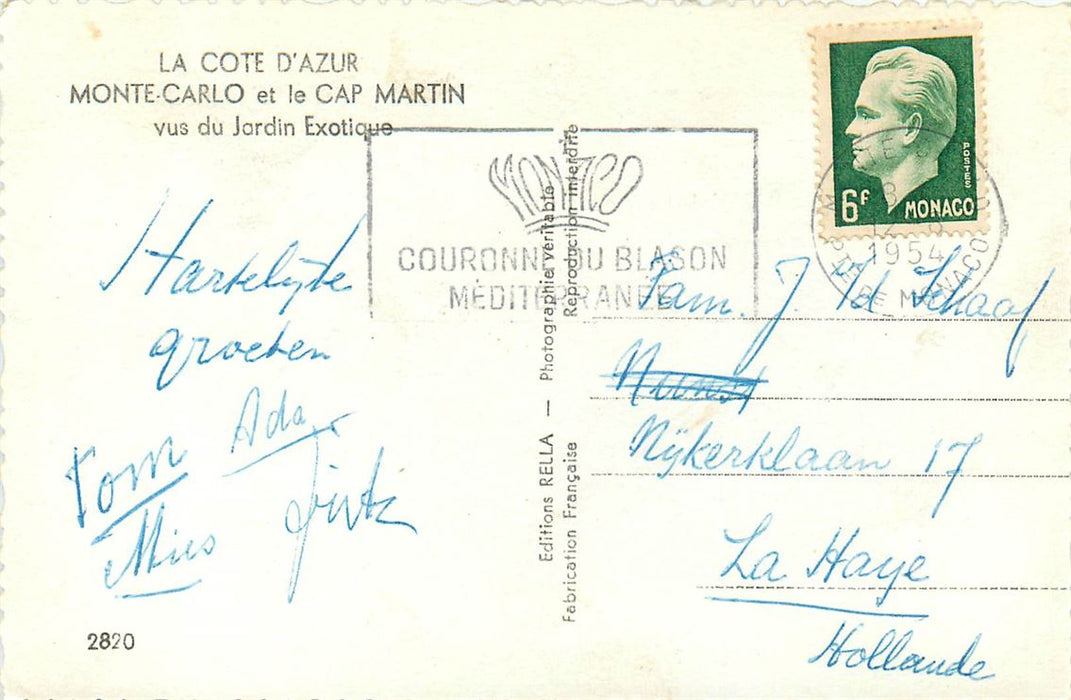 LA COTE D'AZUR
MONTE-CARLO et le CAP MARTIN
vus du Jardin Exotique
Hartelijke
groeten
Ada
Tom
Mies
2820
MONACO
COURONNE DU BLASON
MÉDITERRANÉE
Editions RELLA — Photographie véritable
Fabrication Française
Reproduction interdite
POSTES
6F MONACO
1954
PTÉ DE MONACO
Fam. J. vd Schaaf
Nijkerklaan 17
La Haye
Hollande